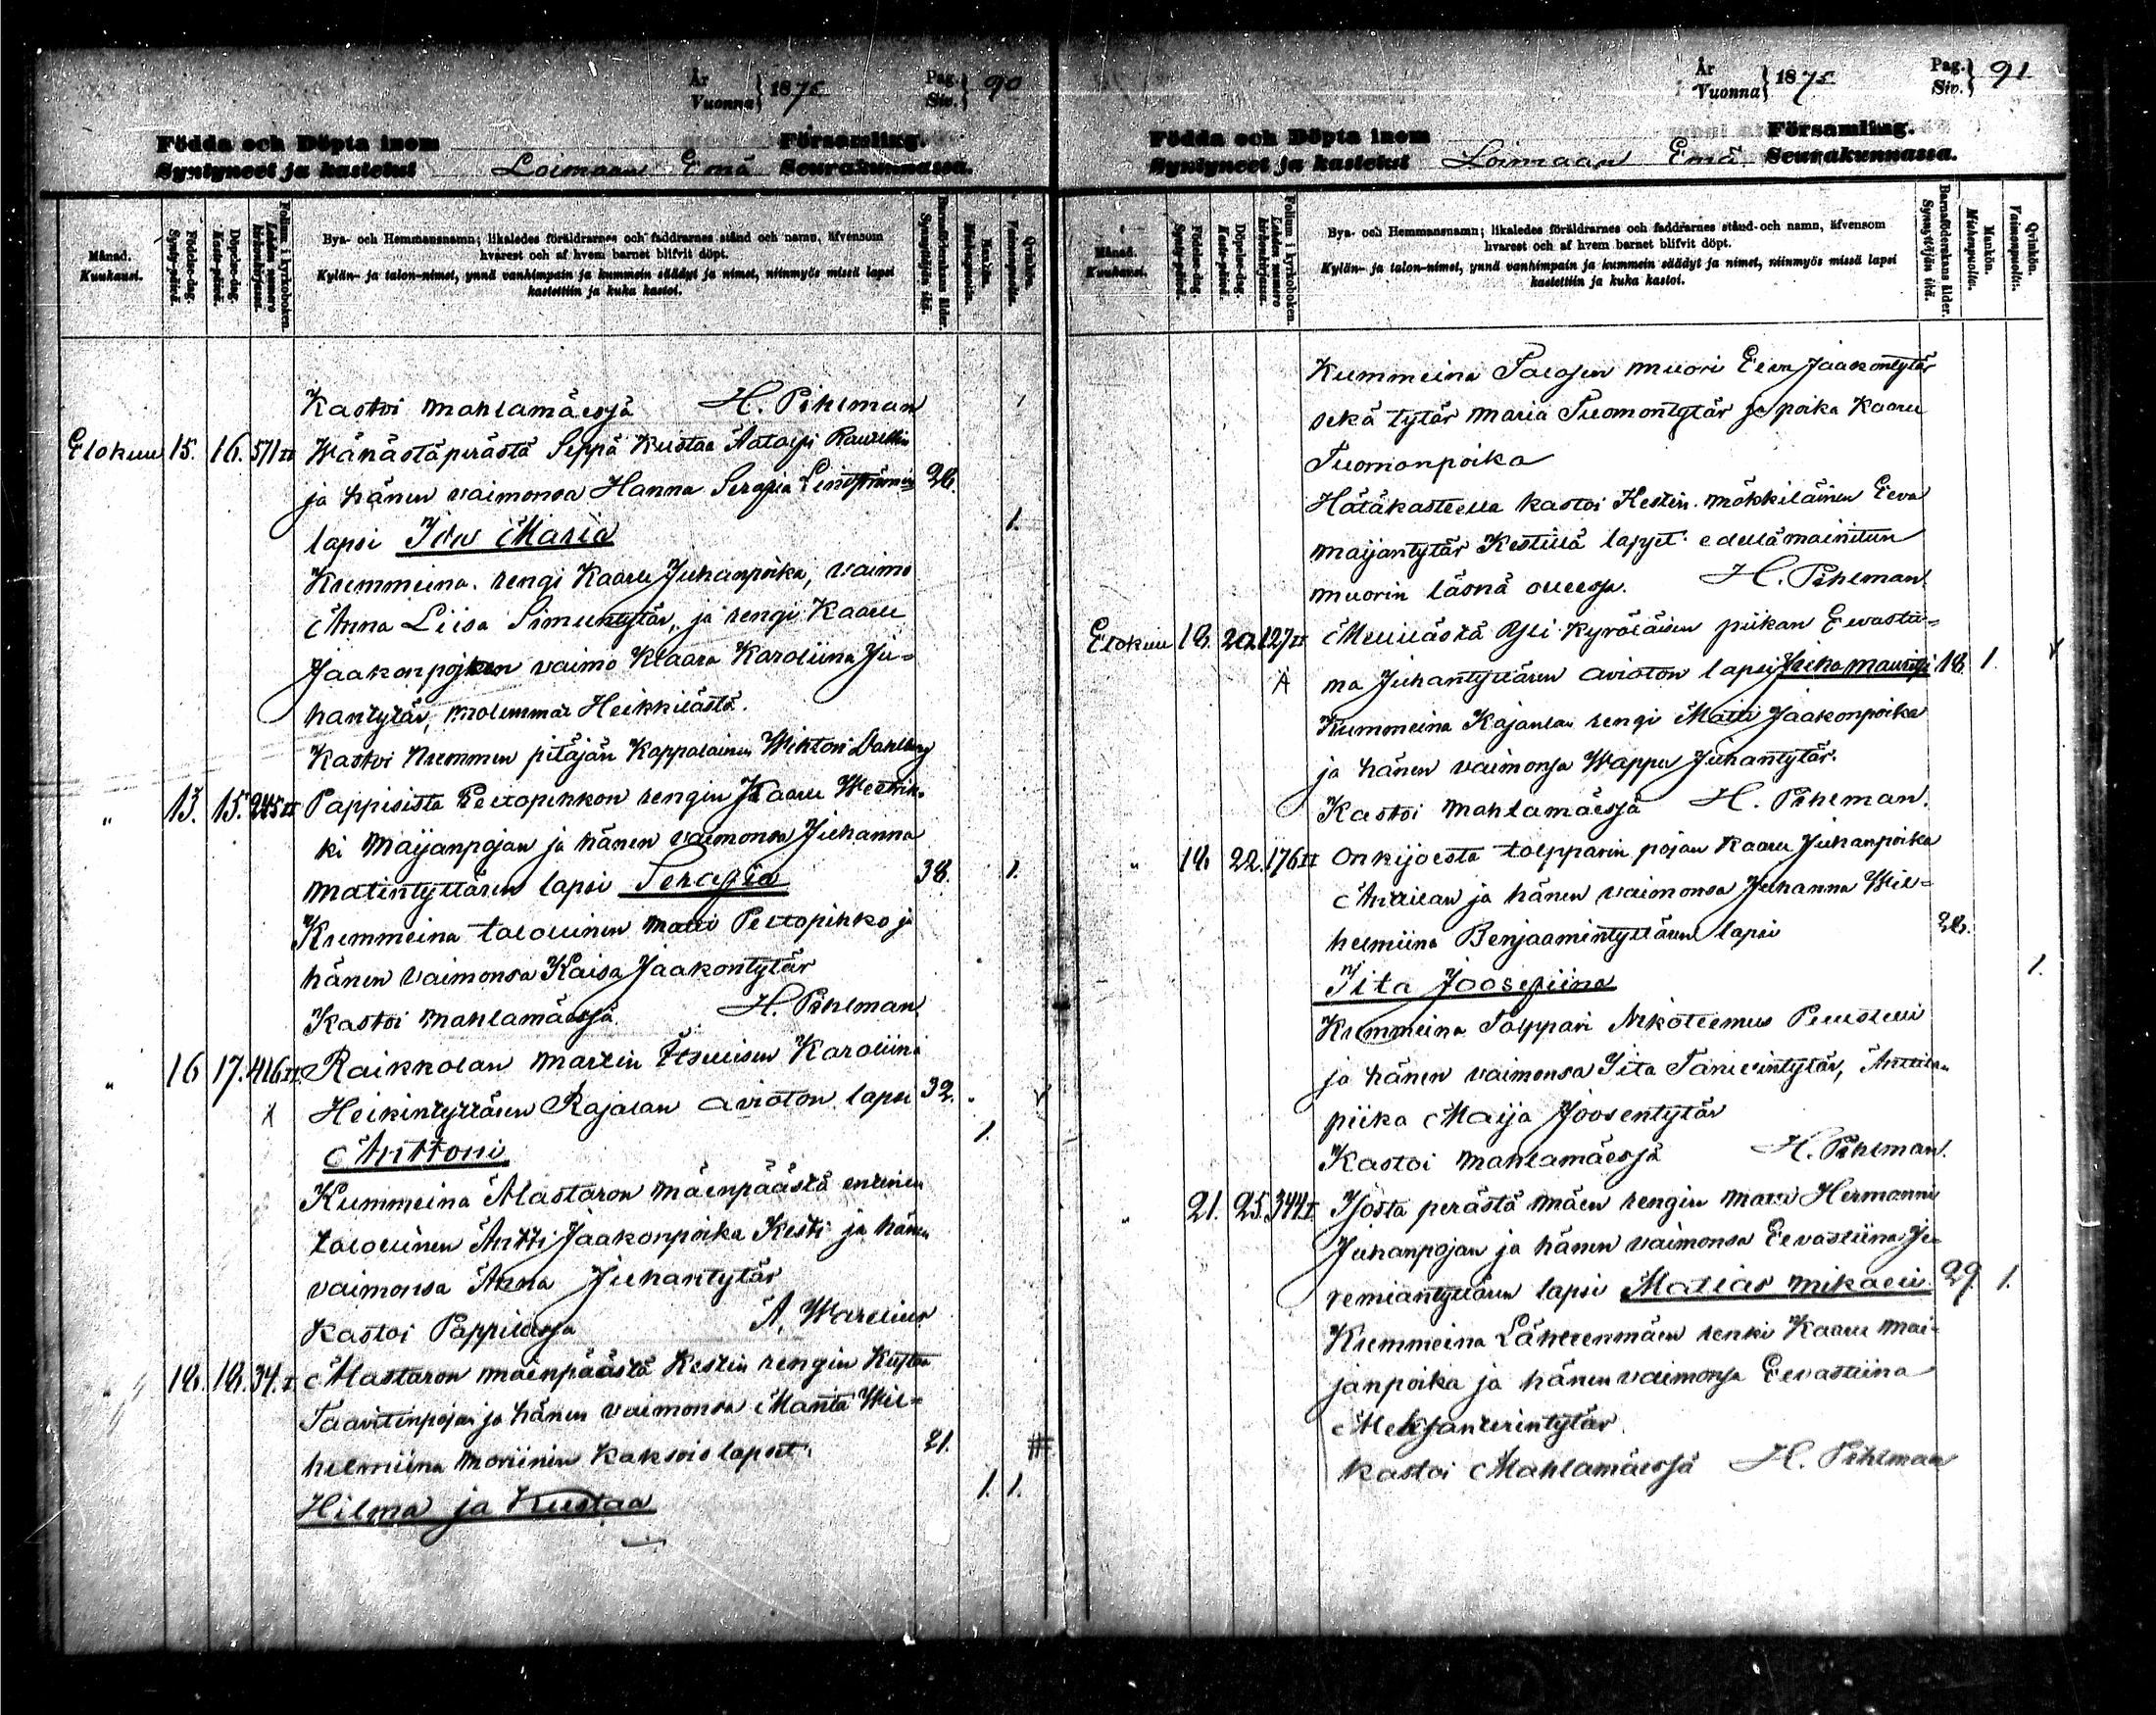 År
Vuonna } 1875
Pag.
Siv. } 90
Födda och Döpta inom Församling.
Syntyneet ja kastetut Loimaan Emä Seurakunnassa.
Månad.
Kuukausi.
Födelse-dag.
Synty-päivä.
Döpelse-dag.
Kaste-päivä.
Folium i kyrkoboken.
Lehden numero kirkonkirjassa.
Bya- och Hemmansnamn; likaledes föräldrarnes och faddrarnes stånd och namn, äfvensom
hvarest och af hvem barnet blifvit döpt.
Kylän- ja talon-nimet, ynnä vanhimpain ja kummein säädyt ja nimet, niinmyös missä lapsi
kastettiin ja kuka kastoi.
Barnaföderskans ålder.
Synnyttäjän ikä.
Mankön.
Miehenpuolia.
Qvinkön.
Vaimonpuolia.
Kastoi Mahlamäessä H. Pihlman
Elokuu 15. 16. 571 II Wänästäperästä Seppä Kustaa Aatolfi
ja hänen vaimonsa Hanna Serafia 26.
lapsi Ida Maria 1.
Kummeina. rengi Kaaru Juhanpoika, vaimo
Anna Liisa Simuntytär, ja rengi Kaaru
Jaakonpojken vaimo Klaara Karoliina Ju=
hantytär, molemmat Heikkilästä.
Kastoi Nummen pitäjän Kappalainen Wihtori Dahlberg
" 13. 15. 245 II Pappisista Peltopihkon rengin Kaaru Weetrik=
ki Maijanpojan ja hänen vaimonsa Juhanna
Matintyttären lapsi Serafia 38. 1.
Kummeina talollinen Matti Peltopihko ja
hänen vaimonsa Kaisa Jaakontytär
Kastoi Mahlamäessä H. Pihlman.
" 16 17. 416 II. Raikkolan Martin Itsellisen Karoliina
X Heikintyttären Rajalan avioton lapsi 32.
Anttoni 1.
Kummeina Alastaron Mäenpäästä entinen
talollinen Antti Jaakonpoika Kesti ja hänen
vaimonsa Anna Juhantytär
Kastoi Pappilassa A. Warelius
" 18. 18. 34. I Alastaron Mäenpäästä Kestin rengin Kustaa
Taavetinpojan ja hänen vaimonsa Manta Wil=
helmiina Moriinin Kaksois lapset. 21.
Hilma ja Kustaa 1. 1.
År
Vuonna } 1875
Pag.
Siv. } 91
Födda och Döpta inom Församling.
Syntyneet ja kastetut Loimaan Emä Seurakunnassa.
Månad.
Kuukausi.
Födelse-dag.
Synty-päivä.
Döpelse-dag.
Kaste-päivä.
Folium i kyrkoboken.
Lehden numero kirkonkirjassa.
Bya- och Hemmansnamn; likaledes föräldrarnes och faddrarnes stånd och namn, äfvensom
hvarest och af hvem barnet blifvit döpt.
Kylän- ja talon-nimet, ynnä vanhimpain ja kummein säädyt ja nimet, niinmyös missä lapsi
kastettiin ja kuka kastoi.
Barnaföderskans ålder.
Synnyttäjän ikä.
Mankön.
Miehenpuolia.
Qvinkön.
Vaimonpuolia.
Kummeina Talosen muori Eeva Jaakontytär
sekä tytär Maria Tuomontytär ja poika Kaaru
Tuomonpoika
Hätäkasteella kastoi Kestin mökkiläinen Eeva
Maijantytär Kestillä lapset edellämainitun
muorin läsnä ollessa. H. Pihlman
Elokuu 18. 20. 127 II Mellilästä Yli Kyröläisen piikan Eevastii=
ma Juhantyttären avioton lapsi Juho Mauritsi 18. 1.
Kummeina Kajanlan rengi Matti Jaakonpoika
ja hänen vaimonsa Wappu Juhantytär.
Kastoi Mahlamäessä H. Pihlman.
" 18. 22. 176 II Onkijoesta tolpparin pojan Kaaru Juhanpoika
Anttilan ja hänen vaimonsa Juhanna Wil=
helmiina Benjaamintyttären lapsi 36.
Iita Joosepiina 1.
Kummeina Tolppari Nikoteemus
ja hänen vaimonsa Iita Tanielintytär, Anttilan
piika Maija Joosentytär
Kastoi Mahlamäessä H. Pihlman.
" 21. 25. 344 I Isosta perästä Mäen rengin Matti Hermanni
Juhanpojan ja hänen vaimonsa Eevastiina Je=
remiantyttären lapsi Matias Mikaeli 29. 1.
Kummeina Lähteenmäen renki Kaaru Mai=
janpoika ja hänen vaimonsa Eevastiina
Aleksanterintytär.
Kastoi Mahlamäessä H. Pihlman